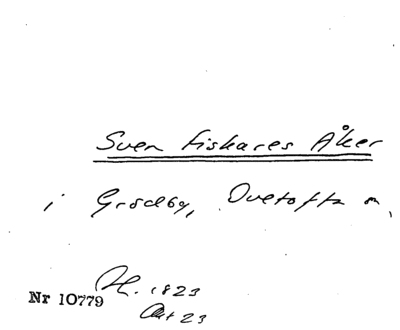 Sven Fiskares Åker
i Grödby, Ovetofta n,
H. 1823
Nr 10779
Akt 23